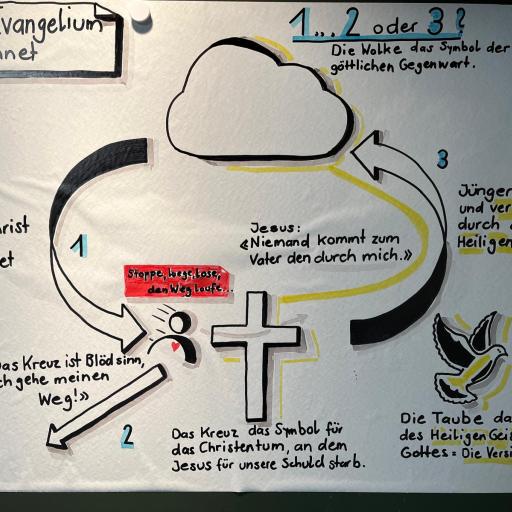 Evangelium
net
1... 2 oder 3?
Die Wolke das Symbol der
göttlichen Gegenwart.
3
Jünger
und ver
durch
Heiligen
rist
et
1
Jesus:
«Niemand kommt zum
Vater den durch mich.»
Stoppe, lose,
den Weg laufe...
das Kreuz ist Blödsinn,
ch gehe meinen
Weg!»
2
Das Kreuz das Symbol für
das Christentum, an dem
Jesus für unsere Schuld starb.
Die Taube da
des Heiligen Geis
Gottes = Die Versi